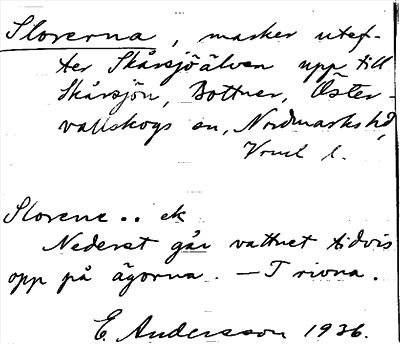 Slorerna, marker utef-
ter Skårsjöälven upp till
Skårsjön, Bottner, Öster-
vallskogs sn, Nordmarks hd,
Vrml l.
Slorene .. ek
Nederst går vattnet tidvis
opp på ägorna. — T rivna.
E. Andersson 1936.